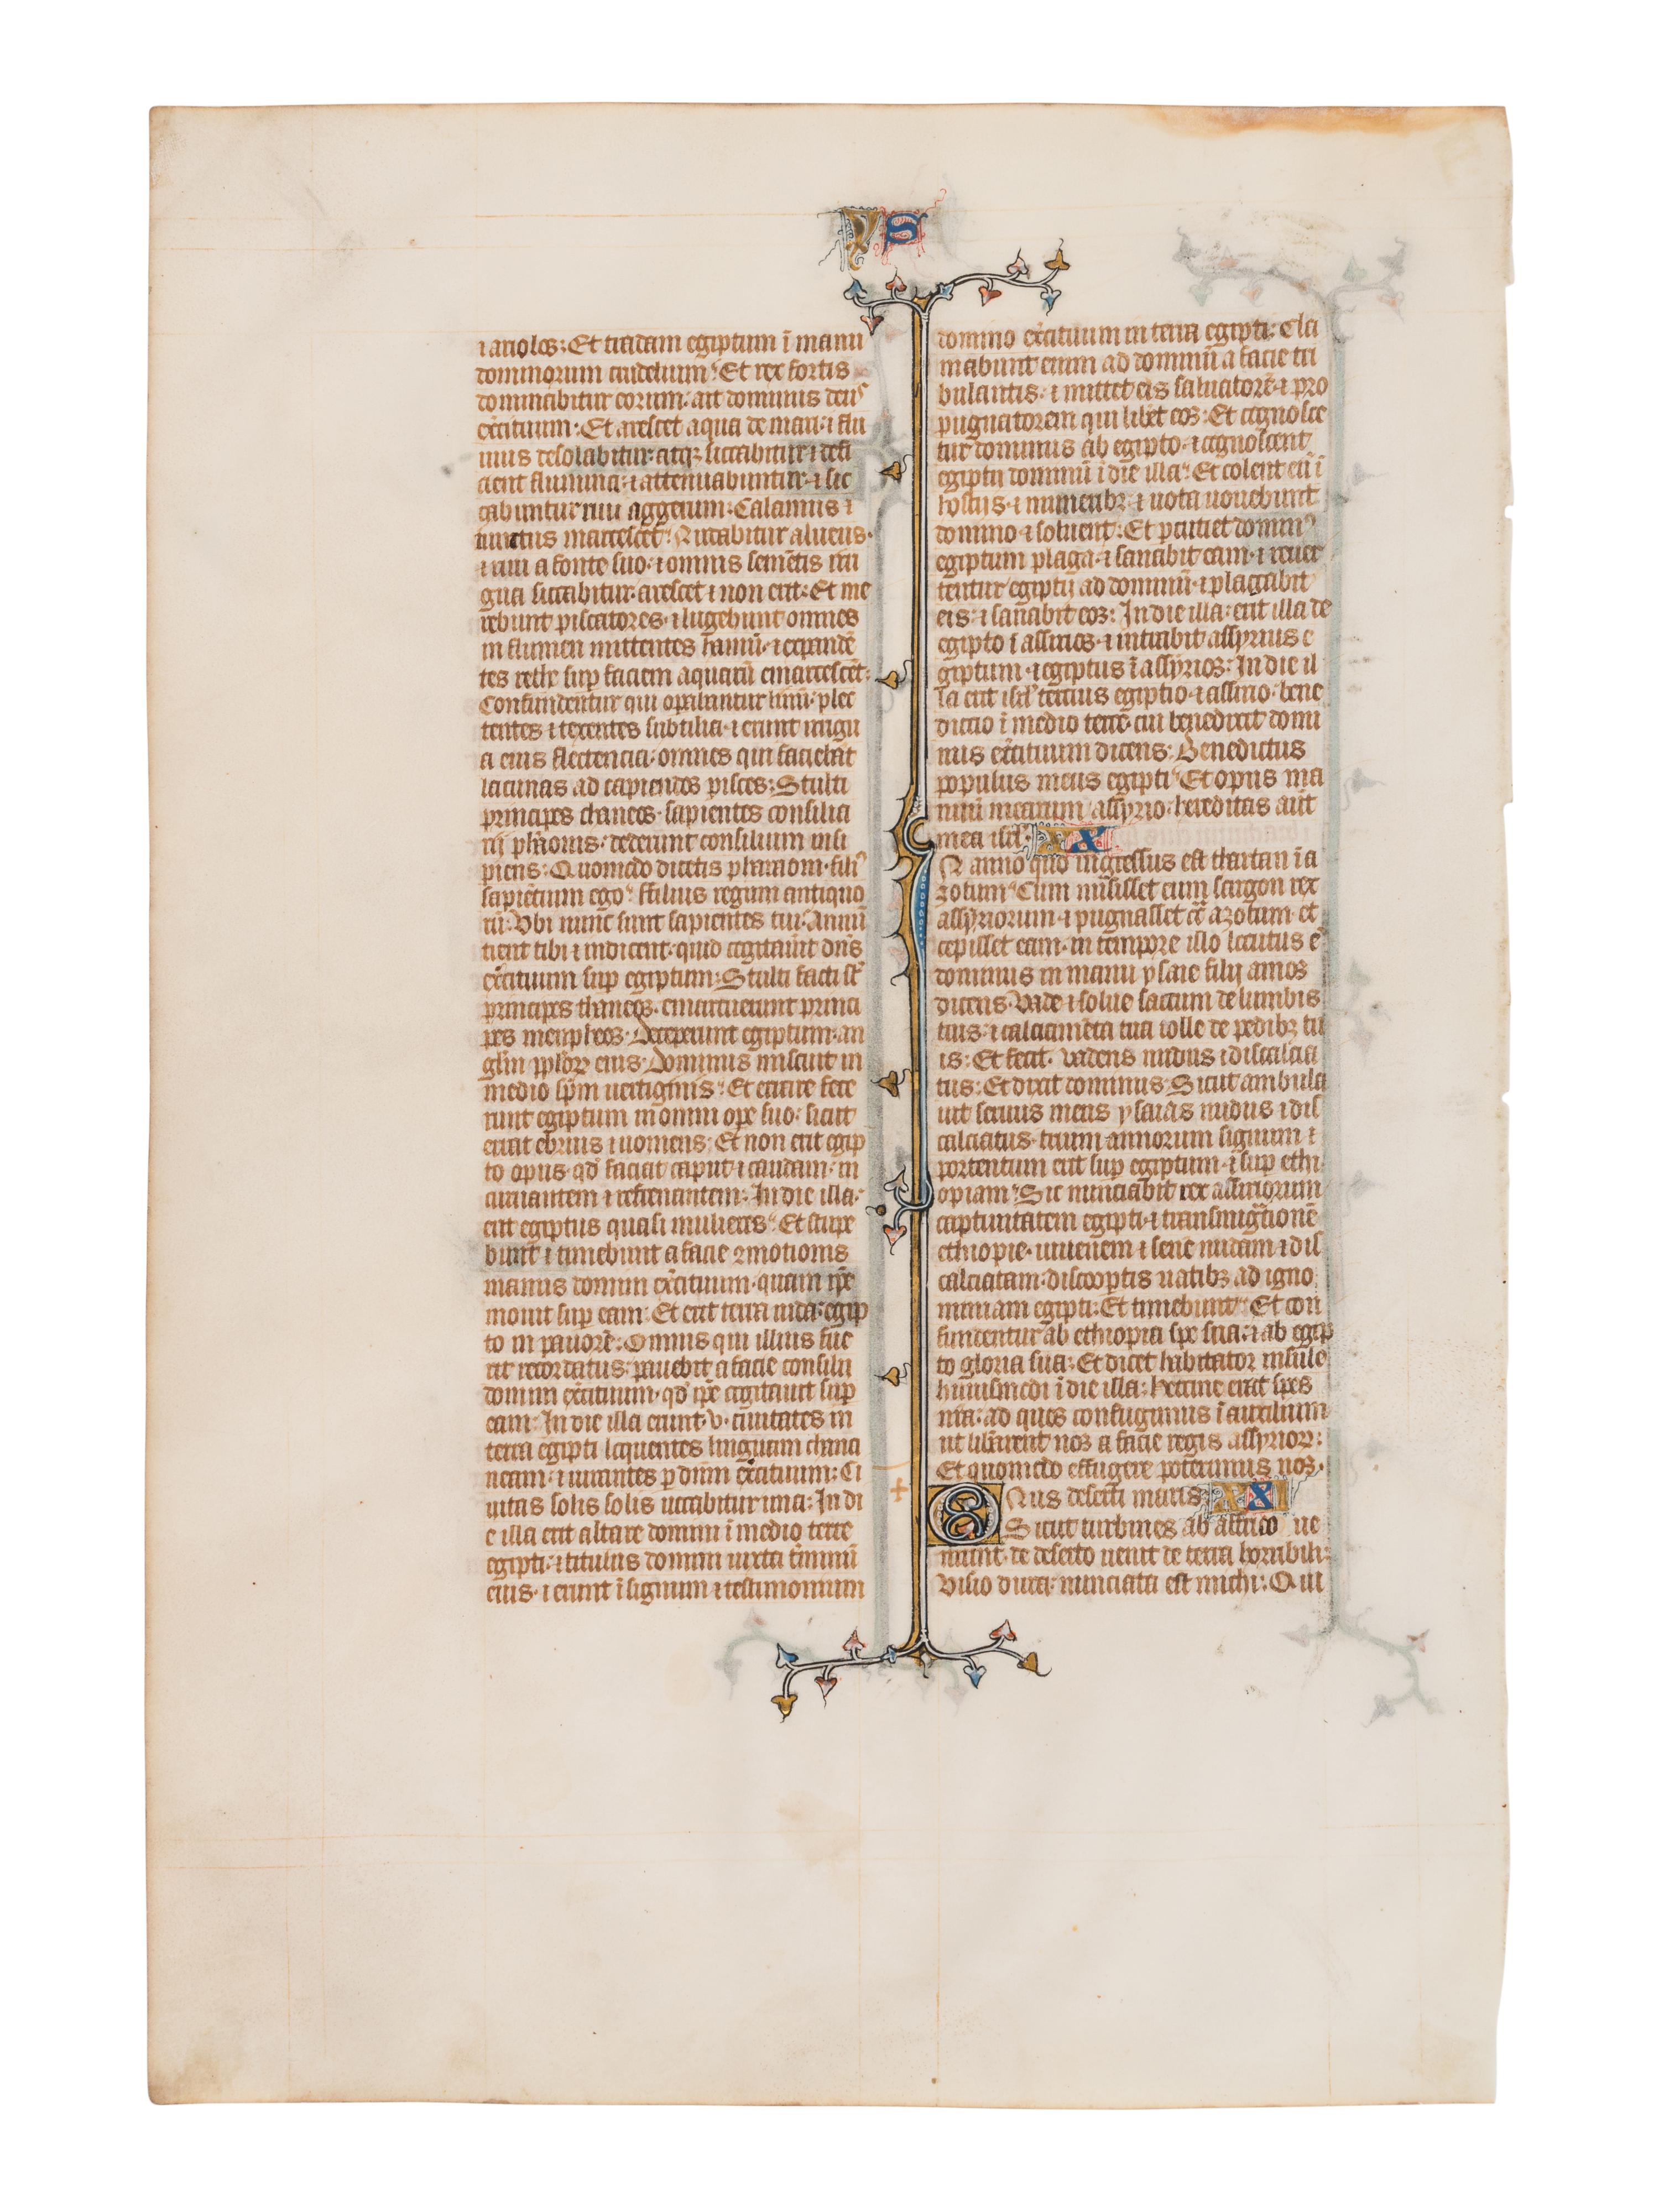 YS
⁊ ariolos: Et tradam egiptum ĩ manu
dominorum crudelium: Et rex fortis
dominabitur eorum· ait dominus deus
ex̃cituum: Et arescet aqua de mari· ⁊ flu
uius desolabitur· atqꝫ siccabitur· ⁊ defi
cient flumina· ⁊ attenuabuntur· ⁊ sic
cabuntur riui aggerum: Calamus ⁊
iunctus marcescet: Nudabitur alueus·
⁊ riui a fonte suo· ⁊ omnis semẽtis irri
gua siccabitur· arescet ⁊ non erit: Et me
rebunt piscatores· ⁊ lugebunt omnes
in flumen mittentes hamũ· ⁊ expandẽ
tes rethe sup faciem aquarũ emarcescẽt:
Confundentur qui opabantur linũ· plec
tentes ⁊ texentes subtilia· ⁊ erunt irrigu
a eius flectencia: omnes qui faciebãt
lacunas ad capiendos pisces: Stulti
principes thaneos· sapientes consilia
rij pharonis· dederunt consilium insi
piens: Quomodo dicetis pharaoni· fili9
sapiẽtium ego: filius regum antiquo
rũ: Vbi nunc sunt sapientes tui: Annũ
tient tibi ⁊ indicent· quid cogitauit dñs
ex̃cituum sup egiptum: Stulti facti st̃
principes thaneos· emarcuerunt princi
pes mempheos· Deceperunt egiptum· an
glm̃ pplõꝝ eius· Dominus miscuit in
medio spm̃ uertiginis: Et errare fece
runt egiptum in omni ope suo· sicut
errat ebrius ⁊ uomens: Et non erit egip
to opus· qd̃ faciat caput ⁊ caudam· in
curuantem ⁊ refrenantem: In die illa·
erit egiptus quasi mulieres: Et stupe
bunt ⁊ timebunt a facie ꝯmotionis
manus domini ex̃cituum· quam ip̃e
mouit sup eam: Et erit terra iuda· egip
to in pauorẽ: Omnis qui illius fue
rit recordatus· pauebit a facie consilii
domini ex̃cituum· qd̃ ip̃e cogitauit sup
eam: In die illa erunt· v· ciuitates in
terra egipti loquentes linguam chana
neam· ⁊ iurantes p dñm ex̃cituum: Ci
uitas solis solis uocabitur una: In di
e illa erit altare domini ĩ medio terre
egipti· ⁊ titulus domini iuxta t̃minũ
eius· ⁊ erunt ĩ signum ⁊ testimonium
domino ex̃cituum in terra egipti: Cla
mabunt enim ad dominũ a facie tri
bulantis· ⁊ mittet eis saluatorẽ· ⁊ pro
pugnatorem qui libẽt eos: Et cognosce
tur dominus ab egipto· ⁊ cognoscent
egiptij dominũ ĩ die illa: Et colent eũ ĩ
hostiis· ⁊ muneribꝫ· ⁊ uota uouebunt
domino ⁊ soluent: Et pcutiet domin9
egiptum plaga· ⁊ sanabit eam· ⁊ reuer
tentur egiptij ad dominũ· ⁊ placabit̃
eis· ⁊ sanabit eos: In die illa· erit uia de
egipto ĩ assirios· ⁊ intrabit assyrius e
giptum· ⁊ egiptus ĩ assyrios: In die il
la erit isrl̃ tercius egiptio· ⁊ assirio· bene
dictio ĩ medio terre· cui benedixit domi
nus ex̃cituum dicens: Benedictus
populus meus egipti: Et opus ma
nuũ mearum· assyrio· hereditas aut̃
mea isrl̃· XX
IN anno quo ingressus est thartan ĩ a
zotum: Cum misisset eum sargon rex
assyriorum· ⁊ pugnasset cõ azotum et
cepisset eam· in tempore illo locutus ẽ
dominus in manu ysaie filij amos
dicens· Vade ⁊ solue saccum de lumbis
tuis· ⁊ calciamẽta tua tolle de pedibꝫ tu
is: Et fecit· vadens nudus ⁊ discalcia
tus: Et dixit dominus· Sicut ambula
uit seruus meus ysaias nudus ⁊ dis
calciatus· trium annorum signum ⁊
portentum erit sup egiptum· ⁊ sup ethi
opiam: Sic minabit rex assiriorum
captiuitatem egipti· ⁊ transmigr̃tionẽ
ethiopie· iuuenem ⁊ senẽ nudam ⁊ dis
calciatam· discoopertis natibꝫ ad igno
miniam egipti: Et timebunt: Et con
fundentur ab ethiopia spe sua· ⁊ ab egip
to gloria sua: Et dicet habitator insule
huiusmodi ĩ die illa: heccine erat spes
nr̃a· ad quos confugimus ĩ auxilium
ut libẽrent nos a facie regis assyrioꝝ:
Et quomodo effugere poterimus nos·
ONus deserti maris· XXI
Sicut turbines ab affrico ue
niunt· de deserto uenit de terra horribili:
Visio dura· nunciata est michi: Qui